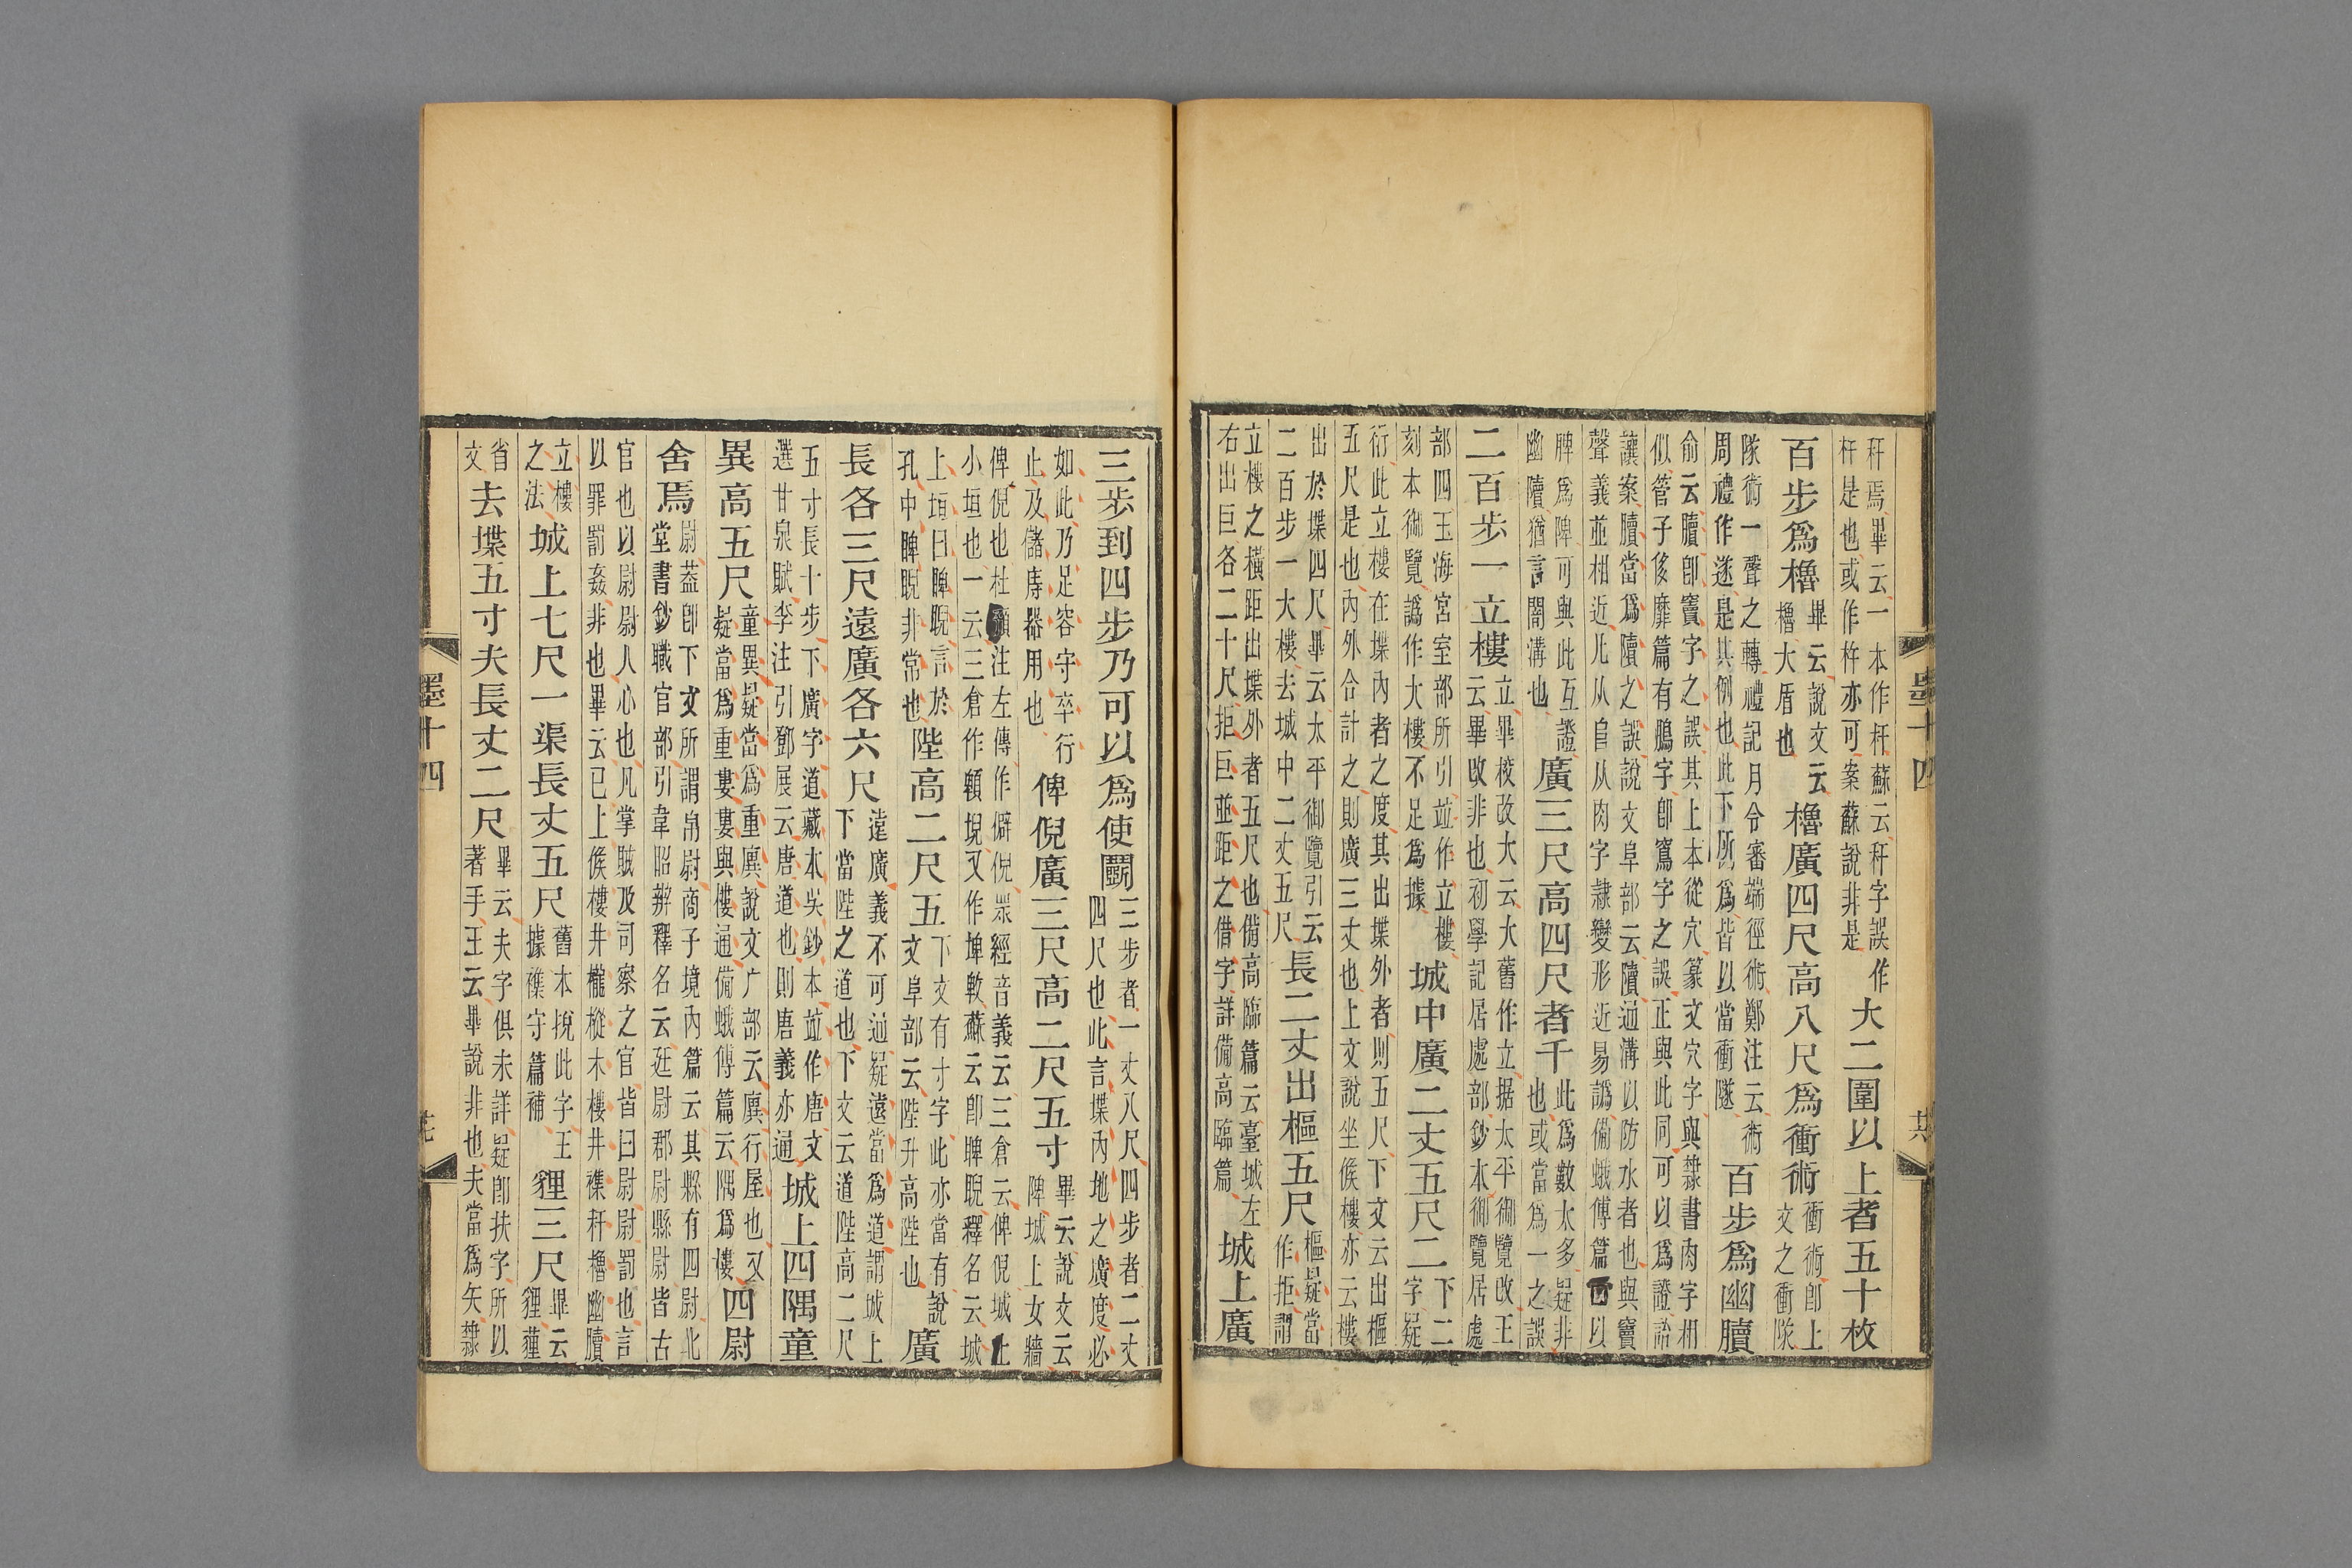 秆焉畢云一本作杆蘇云秆字誤作
杆是也或作杵亦可案蘇說非是
大二圍以上者五十枚
百步爲櫓
畢云說文云
櫓大盾也
櫓廣四尺高八尺爲衝術
衝術卽上
文之衝隊
隊術一聲之轉禮記月令審端徑術鄭注云術
周禮作遂是其例也此下所爲皆以當衝隧
百步爲幽膭
俞云膭卽竇字之誤其上本從穴篆文穴字與隸書肉字相
似管子侈靡篇有鵩字卽窵字之誤正與此同可以爲證詒
讓案膭當爲隫之誤說文阜部云隫通溝以防水者也與竇
聲義並相近凡从𨸏从肉字隸變形近易譌備蛾傅篇以
脾爲陴可與此互證
幽隫猶言闇溝也
廣三尺高四尺者千
此爲數太多疑非
也或當爲一之誤
二百步一立樓
立畢校改大云大舊作立据太平御覽改王
云畢改非也初學記居處部鈔本御覽居處
部四玉海宮室部所引竝作立樓
刻本御覽譌作大樓不足爲據
城中廣二丈五尺二
下二
字疑
衍此立樓在堞內者之度其出堞外者則五尺下文云出樞
五尺是也內外合計之則廣三丈也上文說坐候樓亦云樓
出於堞四尺畢云太平御覽引云
二百步一大樓去城中二丈五尺
長二丈出樞五尺
樞疑當
作拒謂
立樓之橫距出堞外者五尺也備高臨篇云臺城左
右出巨各二十尺拒巨並距之借字詳備高臨篇
城上廣
墨十四
三步到四步乃可以爲使鬭
三步者一丈八尺四步者二丈
四尺也此言堞內地之廣度必
如此乃足容守卒行
止及儲庤器用也
俾倪廣三尺高二尺五寸
畢云說文云
陴城上女牆
俾倪也杜注左傳作僻倪眾經音義云三倉云俾倪城上
小垣也一云三倉作顊堄又作埤敕蘇云卽睥睨釋名云城
上垣曰睥睨言於
孔中睥睨非常也
陛高二尺五
下文有寸字此亦當有說
文阜部云陛升高陛也
廣
長各三尺遠廣各六尺
遠廣義不可通疑遠當爲道謂城上
下當陛之道也下文云道陛高二尺
五寸長十步下廣字道藏本吳鈔本竝作唐文
選甘泉賦李注引鄧展云唐道也則唐義亦通
城上四隅童
異高五尺
童異疑當爲重廙說文广部云廙行屋也又
疑當爲重婁婁與樓通備蛾傅篇云隅爲樓
四尉
舍焉
尉蓋卽下文所謂帛尉商子境內篇云其縣有四尉北
堂書鈔職官部引韋昭辨釋名云廷尉郡尉縣尉皆古
官也以尉尉人心也凡掌賊及司察之官皆曰尉尉罰也言
以罪罰姦非也畢云已上候樓井櫳樅木樓井櫟秆櫓幽膭
立樓
之法
城上七尺一渠長丈五尺
舊本挩此字王
據襍守篇補
貍三尺
畢云
貍薶
省
文
去堞五寸夫長丈二尺
畢云夫字俱未詳疑卽扶字所以
著手王云畢說非也夫當爲矢隸
墨十四